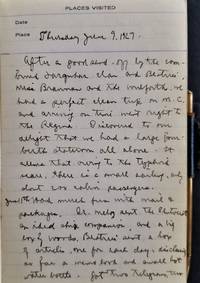 PLACES VISITED
Date
Place Thursday June 9, 1927.
After a good send-off by the com-
bined Farquhar clan and Beatrice,
Miss Brannan and the
had a perfect clean trip on M.C.
and arriving on time went right to
the Regina. Discovered to our
delight that we had a large four-
berth stateroom all alone. It
seems that owing to the typhoid
scare, there is a small sailing, only
about 200 cabin passengers.
Had much fun with mail &
packages. Dr. sent the
an ideal ship companion, and a big
box of goods, Beatrice sent a box
of articles, one for each day, disclosing
so far a news book and small hot
water bottle. Got two telegrams, two